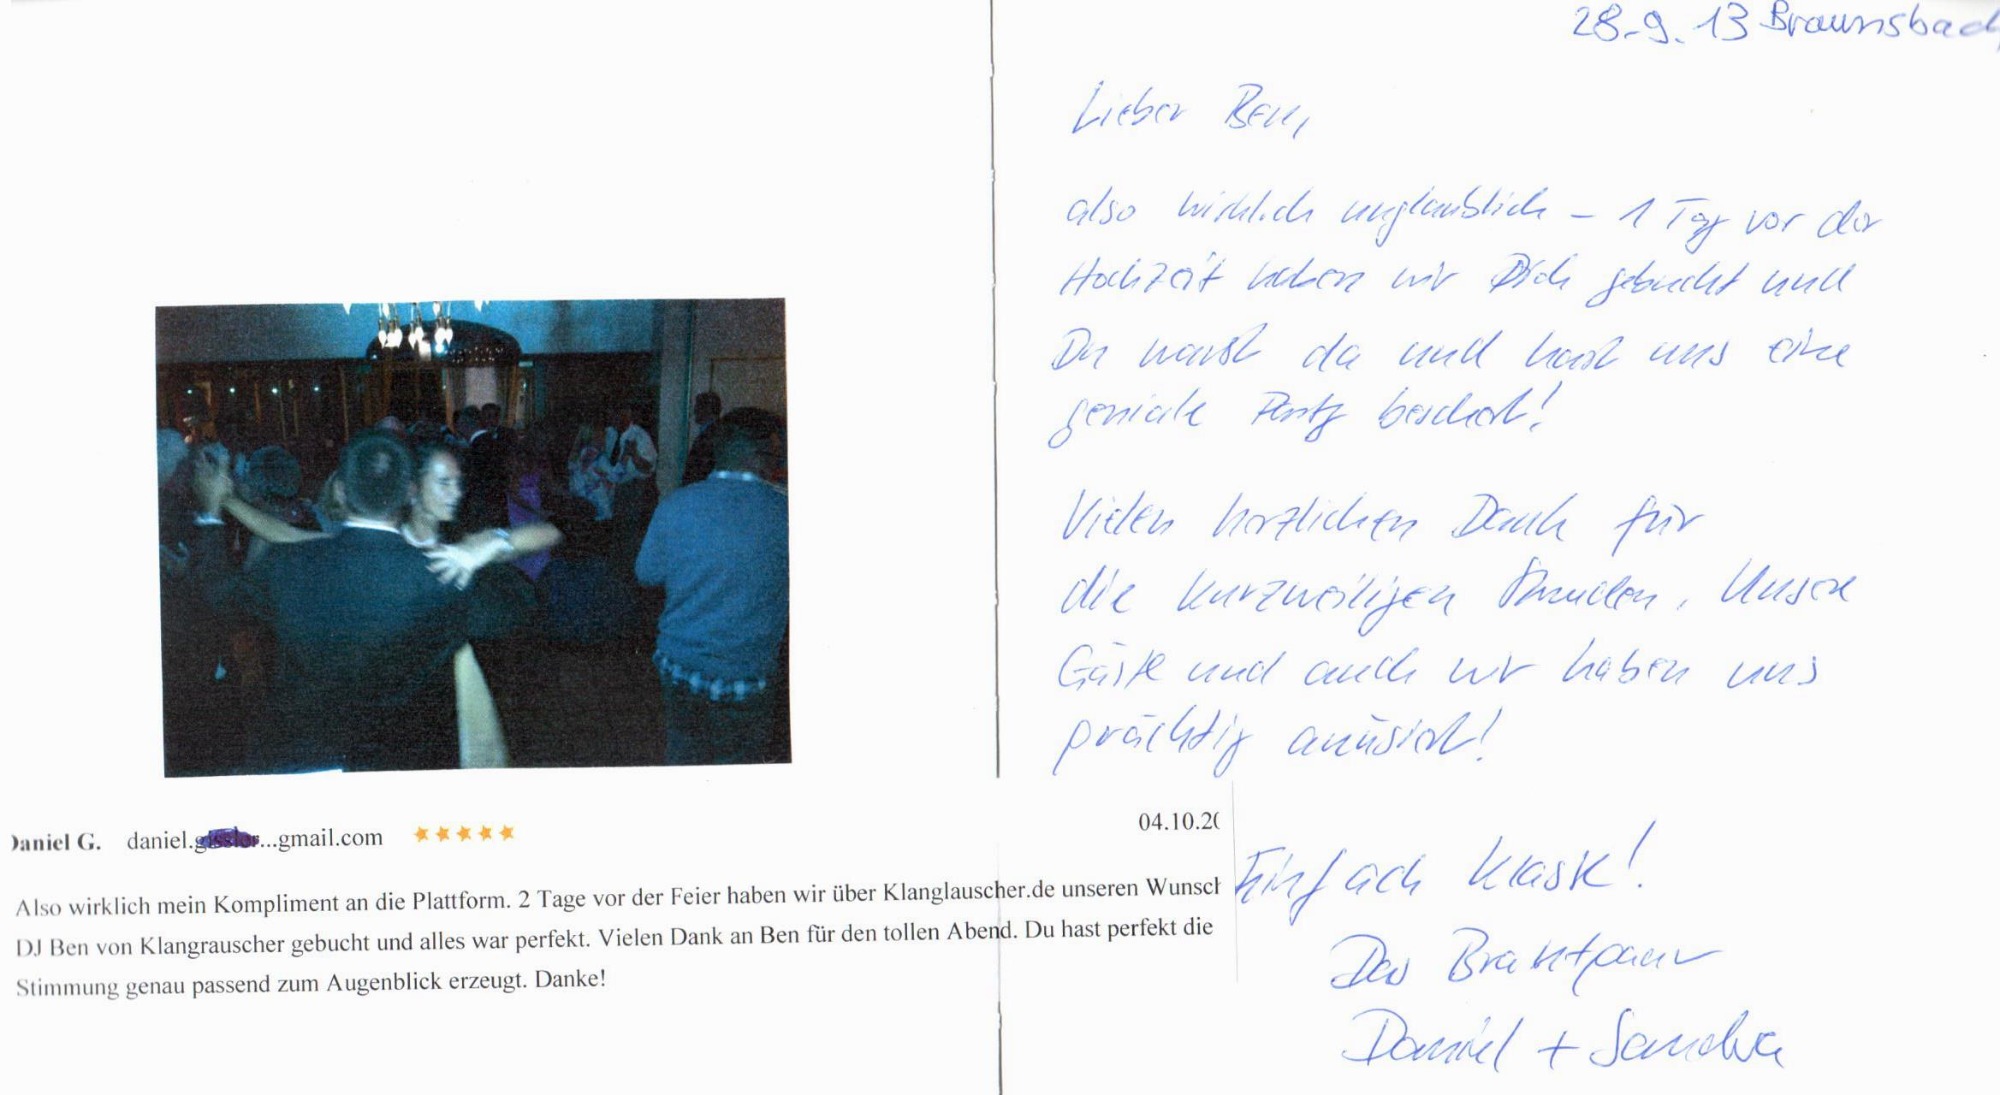 28.9.13 Braunsbach
Lieber Ben,
also wirklich unglaublich – 1 Tag vor der
Hochzeit haben wir Dich gebucht und
Du warst da und hast uns eine
geniale Party beschert!
Vielen herzlichen Dank für
die kurzweiligen Stunden. Unsere
Gäste und auch wir haben uns
prächtig amüsiert!
Einfach klasse!
Das Brautpaar
Daniel + Sandra
Daniel G. daniel.…gmail.com ★★★★★ 04.10.20
Also wirklich mein Kompliment an die Plattform. 2 Tage vor der Feier haben wir über Klanglauscher.de unseren Wunsch
DJ Ben von Klangrauscher gebucht und alles war perfekt. Vielen Dank an Ben für den tollen Abend. Du hast perfekt die
Stimmung genau passend zum Augenblick erzeugt. Danke!